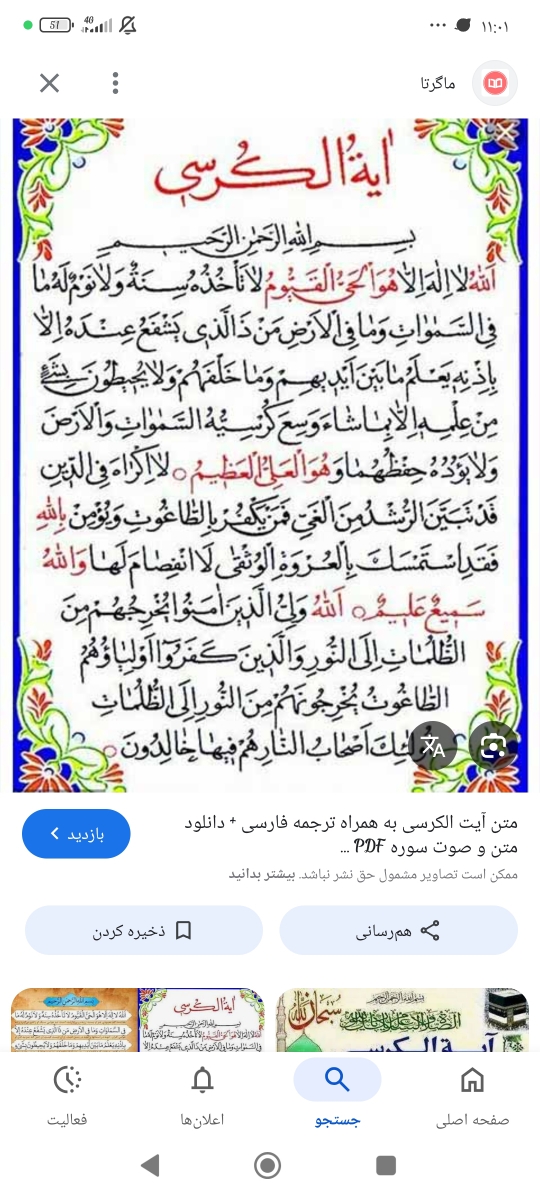 ۱۱:۰۱
40
51
ماگرتا
اٰیةُ الکُرسي
بِسْمِ اللهِ الرَّحْمٰنِ الرَّحيمِ
اَللهُ لا اِلٰهَ اِلاّ هُوَ الْحَيُّ الْقَيُّومُ لا تَأْخُذُهُ سِنَةٌ وَلا نَوْمٌ لَهُ ما
فِي السَّمٰواتِ وَما فِي الْاَرْضِ مَنْ ذَا الَّذي يَشْفَعُ عِنْدَهُ اِلاّ
بِاِذْنِه يَعْلَمُ ما بَيْنَ اَيْديهِمْ وَما خَلْفَهُمْ وَلا يُحيطُونَ بِشَيْءٍ
مِنْ عِلْمِه اِلاّ بِما شاءَ وَسِعَ كُرْسِيُّهُ السَّمٰواتِ وَالْاَرْضَ
وَلا يَؤُدُهُ حِفْظُهُما وَهُوَ الْعَلِيُّ الْعَظيمُ ○ لا اِكْراهَ فِي الدّينِ
قَدْ تَبَيَّنَ الرُّشْدُ مِنَ الْغَيِّ فَمَنْ يَكْفُرْ بِالطّاغُوتِ وَيُؤْمِنْ بِاللهِ
فَقَدِ اسْتَمْسَكَ بِالْعُرْوَةِ الْوُثْقٰى لَا انْفِصامَ لَها وَاللهُ
سَميعٌ عَليمٌ ○ اَللهُ وَلِيُّ الَّذينَ اٰمَنُوا يُخْرِجُهُمْ مِنَ
الظُّلُماتِ اِلَى النُّورِ وَالَّذينَ كَفَرُوا اَوْلِياؤُهُمُ
الطّاغُوتُ يُخْرِجُونَهُمْ مِنَ النُّورِ اِلَى الظُّلُماتِ
اُولٰئِكَ اَصْحابُ النّارِ هُمْ فيها خالِدُونَ ○
متن آیت الکرسی به همراه ترجمه فارسی + دانلود
متن و صوت سوره PDF ...
بازدید
ممکن است تصاویر مشمول حق نشر نباشد. بیشتر بدانید
هم‌رسانی
ذخیره کردن
سبحان الله
اٰیةُ الکُرسي
آیة الکرسی
صفحه اصلی
جستجو
اعلان‌ها
فعالیت